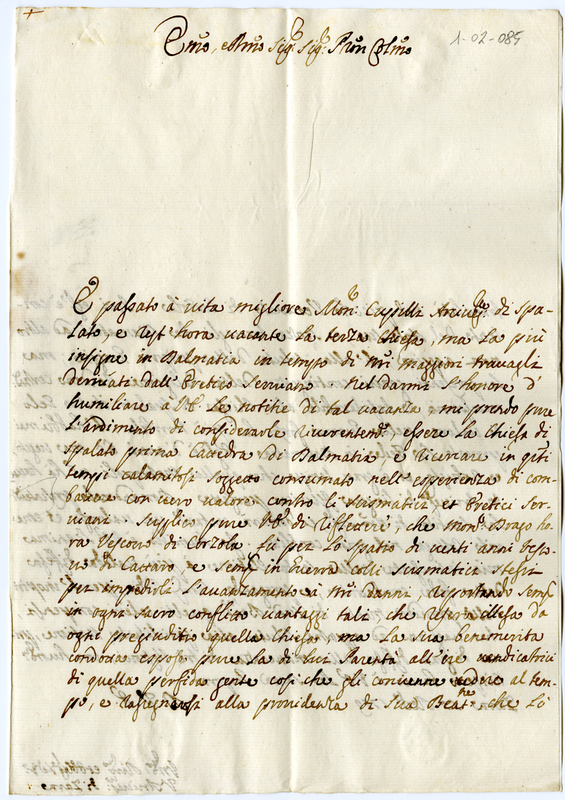 1-02-085
Emo, e Rmo Sigr. Sigr. Pron Colmo
È passato à vita migliore Monr. Cupilli Arcivesc. di Spa-
lato, e rest' hora vacante la terza Chiesa, ma la più
insigne in Dalmatia in tempo di nri maggiori travagli
derivati dall' Eretico Serviano. Nel darmi l'honore d'
humiliare à VE. le notitie di tal vacanza, mi prendo pure
l'ardimento di considerarle riverentemte., essere la Chiesa di
Spalato prima Cattedra di Dalmatia, e ricercare in qsti
tempi calamitosi soggetto consumato nell' esperienza di com-
battere con vero valore contro li Scismatici, et Eretici Ser-
viani. Supplico pure VE. di riflettere, che monr. Drago ho-
ra Vescovo di Corzola. fù per lo spatio di venti anni Vesco-
vo di Cattaro e sempre in guerra colli Scismatici stessi
per impedirli l'avanzamento à nri danni, riportando sempre
in ogni sacro conflitto vantaggi tali che restò illesa da
ogni pregiuditio quella Chiesa ma la sua benemerita
condotta espose pure la di lui Parentà all' ire vendicatrici
di quella perfida gente così che gli convenne cedere al tem-
po, e rassegnarsi alla providenza di Sua Beatne., che lo